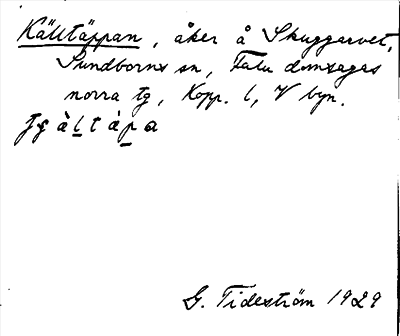 Källtäppan, åker å Skuggarvet,
Sundborns sn, Falu domsagas
norra tg, Kopp. l, V byn.
G. Tideström 1929